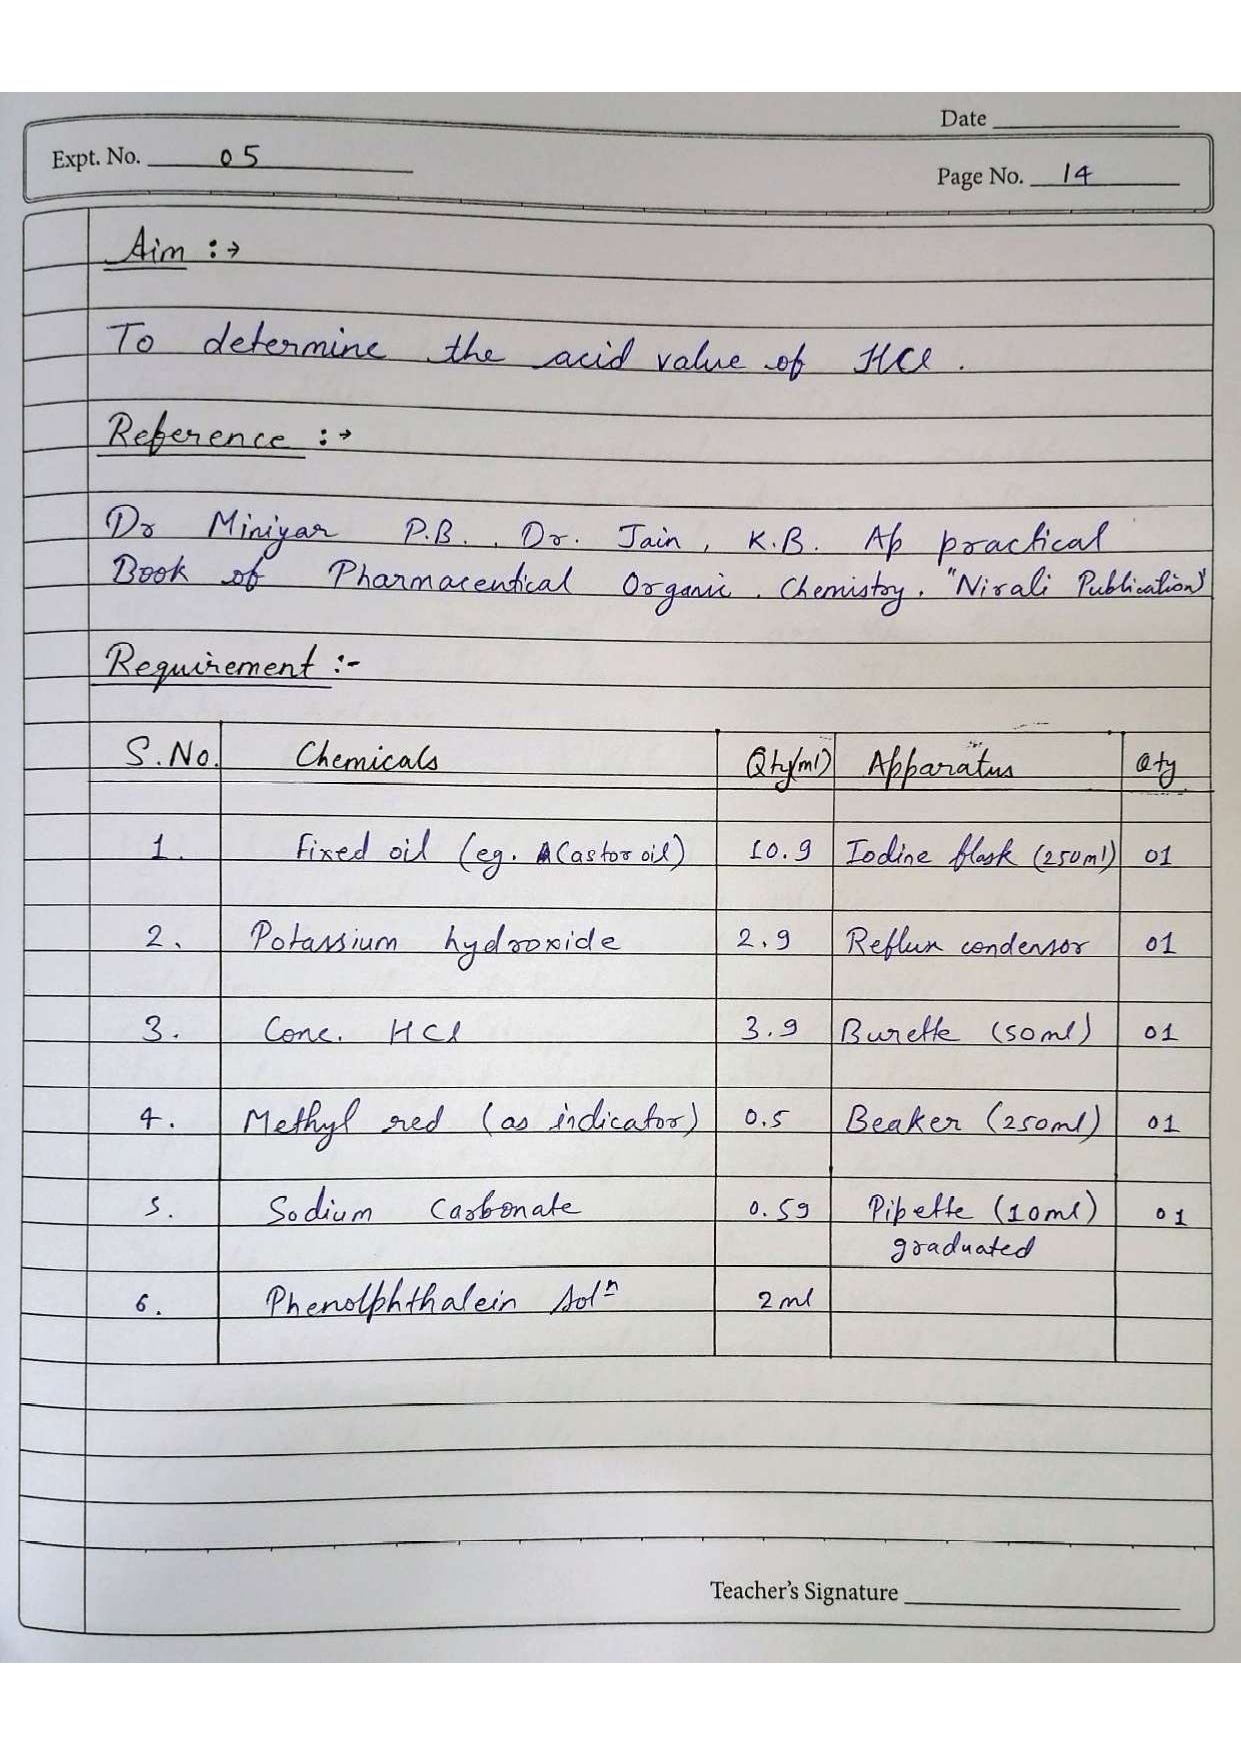 Date
Expt. No. 05
Page No. 14
Aim :→
To determine the acid value of HCl.
Reference :→
Dr Miniyar P.B., Dr. Jain, K.B. Ap practical
Book of Pharmaceutical Organic. Chemistry. "Nirali Publication"
Requirement :-
S.No. Chemicals Qty(ml) Apparatus Qty
1. Fixed oil (eg. Castor oil) 10.9 Iodine flask (250ml) 01
2. Potassium hydroxide 2.9 Reflux condensor 01
3. Conc. HCl 3.9 Burette (50ml) 01
4. Methyl red (as indicator) 0.5 Beaker (250ml) 01
5. Sodium Carbonate 0.5g Pipette (10ml) 01
graduated
6. Phenolphthalein Solⁿ 2ml
Teacher's Signature